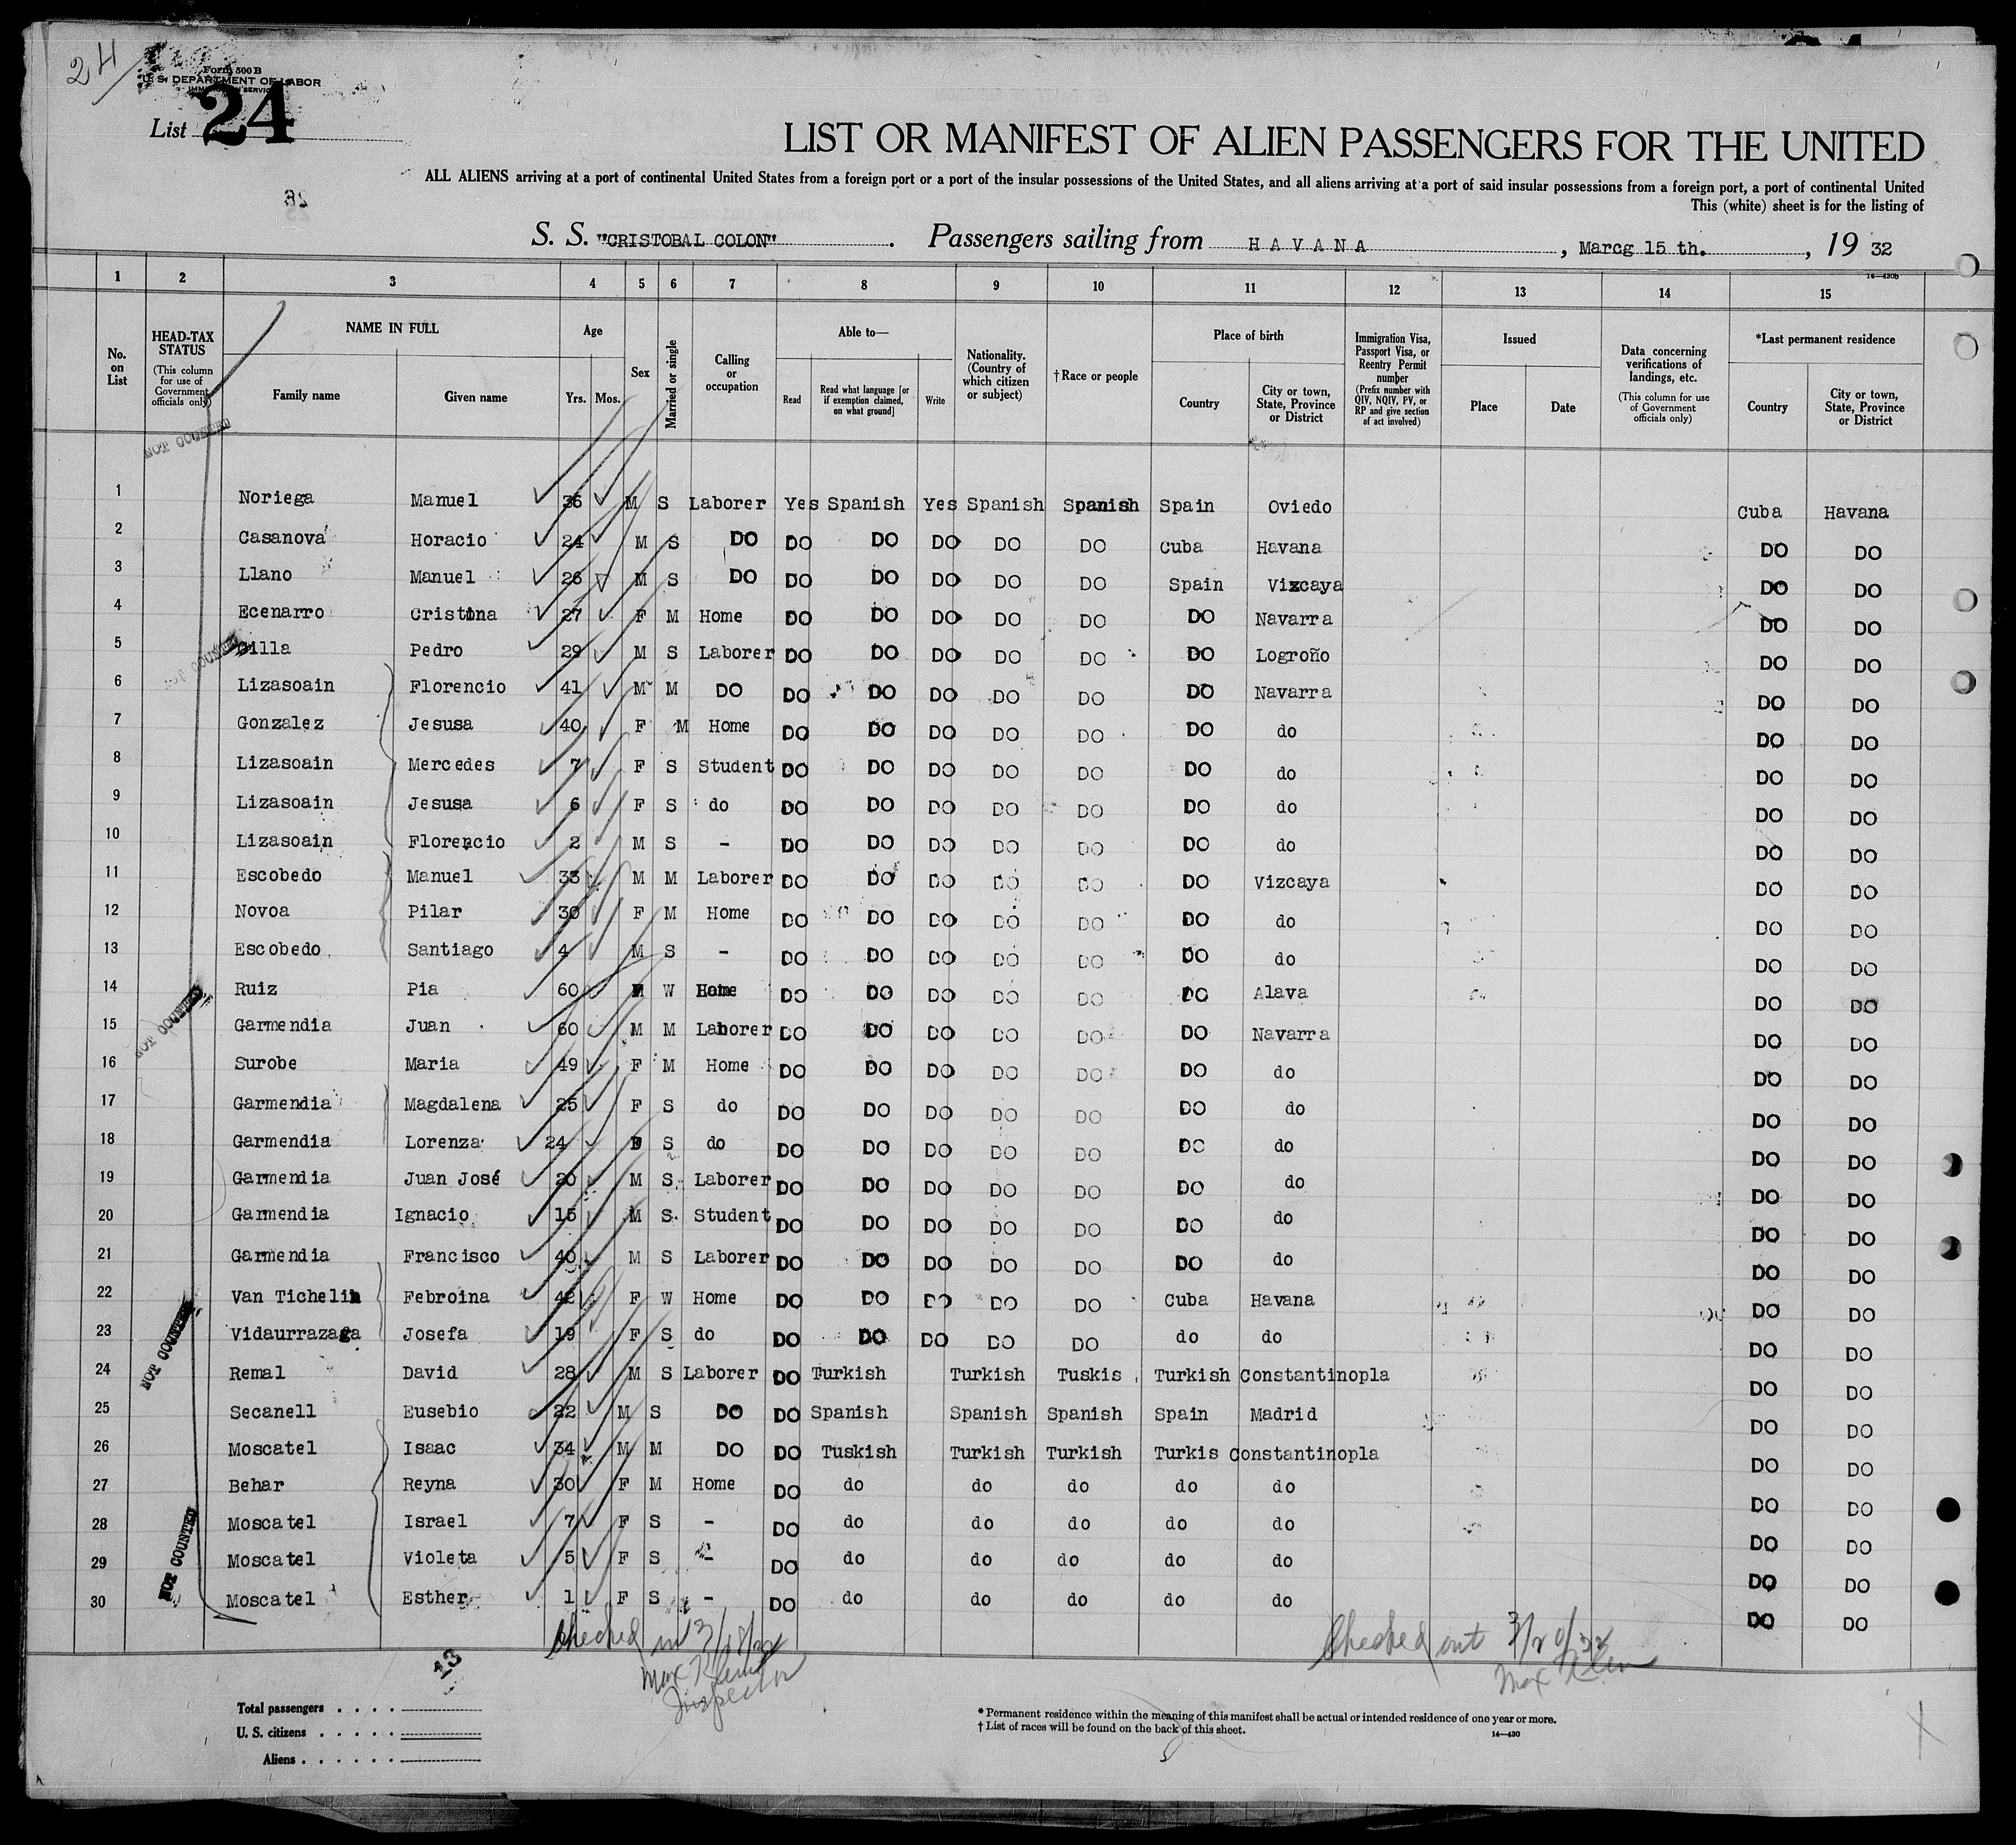 24
Form 500 B
U. S. DEPARTMENT OF LABOR
IMMIGRATION SERVICE
List 24
LIST OR MANIFEST OF ALIEN PASSENGERS FOR THE UNITED
ALL ALIENS arriving at a port of continental United States from a foreign port or a port of the insular possessions of the United States, and all aliens arriving at a port of said insular possessions from a foreign port, a port of continental United
This (white) sheet is for the listing of
S. S. "CRISTOBAL COLON" . Passengers sailing from HAVANA , Marcg 15 th. , 19 32
14—430b
1 2 3 4 5 6 7 8 9 10 11 12 13 14 15
No. on List
HEAD-TAX STATUS (This column for use of Government officials only)
NAME IN FULL Family name Given name
Age Yrs. Mos.
Sex
Married or single
Calling or occupation
Able to— Read Read what language [or if exemption claimed, on what ground] Write
Nationality. (Country of which citizen or subject)
†Race or people
Place of birth Country City or town, State, Province or District
Immigration Visa, Passport Visa, or Reentry Permit number (Prefix number with QIV, NQIV, PV, or RP and give section of act involved)
Issued Place Date
Data concerning verifications of landings, etc. (This column for use of Government officials only)
*Last permanent residence Country City or town, State, Province or District
NOT COUNTED
1 Noriega Manuel 36 M S Laborer Yes Spanish Yes Spanish Spanish Spain Oviedo Cuba Havana
2 Casanova Horacio 24 M S DO DO DO DO DO DO Cuba Havana DO DO
3 Llano Manuel 26 M S DO DO DO DO DO DO Spain Vizcaya DO DO
4 Ecenarro Cristina 27 F M Home DO DO DO DO DO DO Navarra DO DO
NOT COUNTED
5 Cilla Pedro 29 M S Laborer DO DO DO DO DO DO Logroño DO DO
6 Lizasoain Florencio 41 M M DO DO DO DO DO DO DO Navarra DO DO
7 Gonzalez Jesusa 40 F M Home DO DO DO DO DO DO do DO DO
8 Lizasoain Mercedes 7 F S Student DO DO DO DO DO DO do DO DO
9 Lizasoain Jesusa 6 F S do DO DO DO DO DO DO do DO DO
10 Lizasoain Florencio 2 M S - DO DO DO DO DO DO do DO DO
11 Escobedo Manuel 33 M M Laborer DO DO DO DO DO DO Vizcaya DO DO
12 Novoa Pilar 30 F M Home DO DO DO DO DO DO do DO DO
13 Escobedo Santiago 4 M S - DO DO DO DO DO DO do DO DO
NOT COUNTED
14 Ruiz Pia 60 W Home DO DO DO DO DO DO Alava DO DO
15 Garmendia Juan 60 M M Laborer DO DO DO DO DO DO Navarra DO DO
16 Surobe Maria 49 F M Home DO DO DO DO DO DO do DO DO
17 Garmendia Magdalena 25 F S do DO DO DO DO DO DO do DO DO
18 Garmendia Lorenza 24 F S do DO DO DO DO DO DO do DO DO
19 Garmendia Juan José 20 M S Laborer DO DO DO DO DO DO do DO DO
20 Garmendia Ignacio 15 M S Student DO DO DO DO DO DO do DO DO
21 Garmendia Francisco 40 M S Laborer DO DO DO DO DO DO do DO DO
22 Van Tichelin Febroina 42 F W Home DO DO DO DO DO Cuba Havana DO DO
NOT COUNTED
23 Vidaurrazaga Josefa 19 F S do DO DO DO DO DO do do DO DO
24 Remal David 28 M S Laborer DO Turkish Turkish Tuskis Turkish Constantinopla DO DO
25 Secanell Eusebio 22 M S DO DO Spanish Spanish Spanish Spain Madrid DO DO
26 Moscatel Isaac 34 M M DO DO Tuskish Turkish Turkish Turkis Constantinopla DO DO
27 Behar Reyna 30 F M Home DO do do do do do DO DO
28 Moscatel Israel 7 F S - DO do do do do do DO DO
NOT COUNTED
29 Moscatel Violeta 5 F S - DO do do do do do DO DO
30 Moscatel Esther 1 F S - DO do do do do do DO DO
Checked in 3/18/32
Max Klein
Inspector
Checked out 3/20/32
Max Klein
13
Total passengers . . . .
U. S. citizens . . . . .
Aliens . . . . . .
* Permanent residence within the meaning of this manifest shall be actual or intended residence of one year or more.
† List of races will be found on the back of this sheet.
14—430